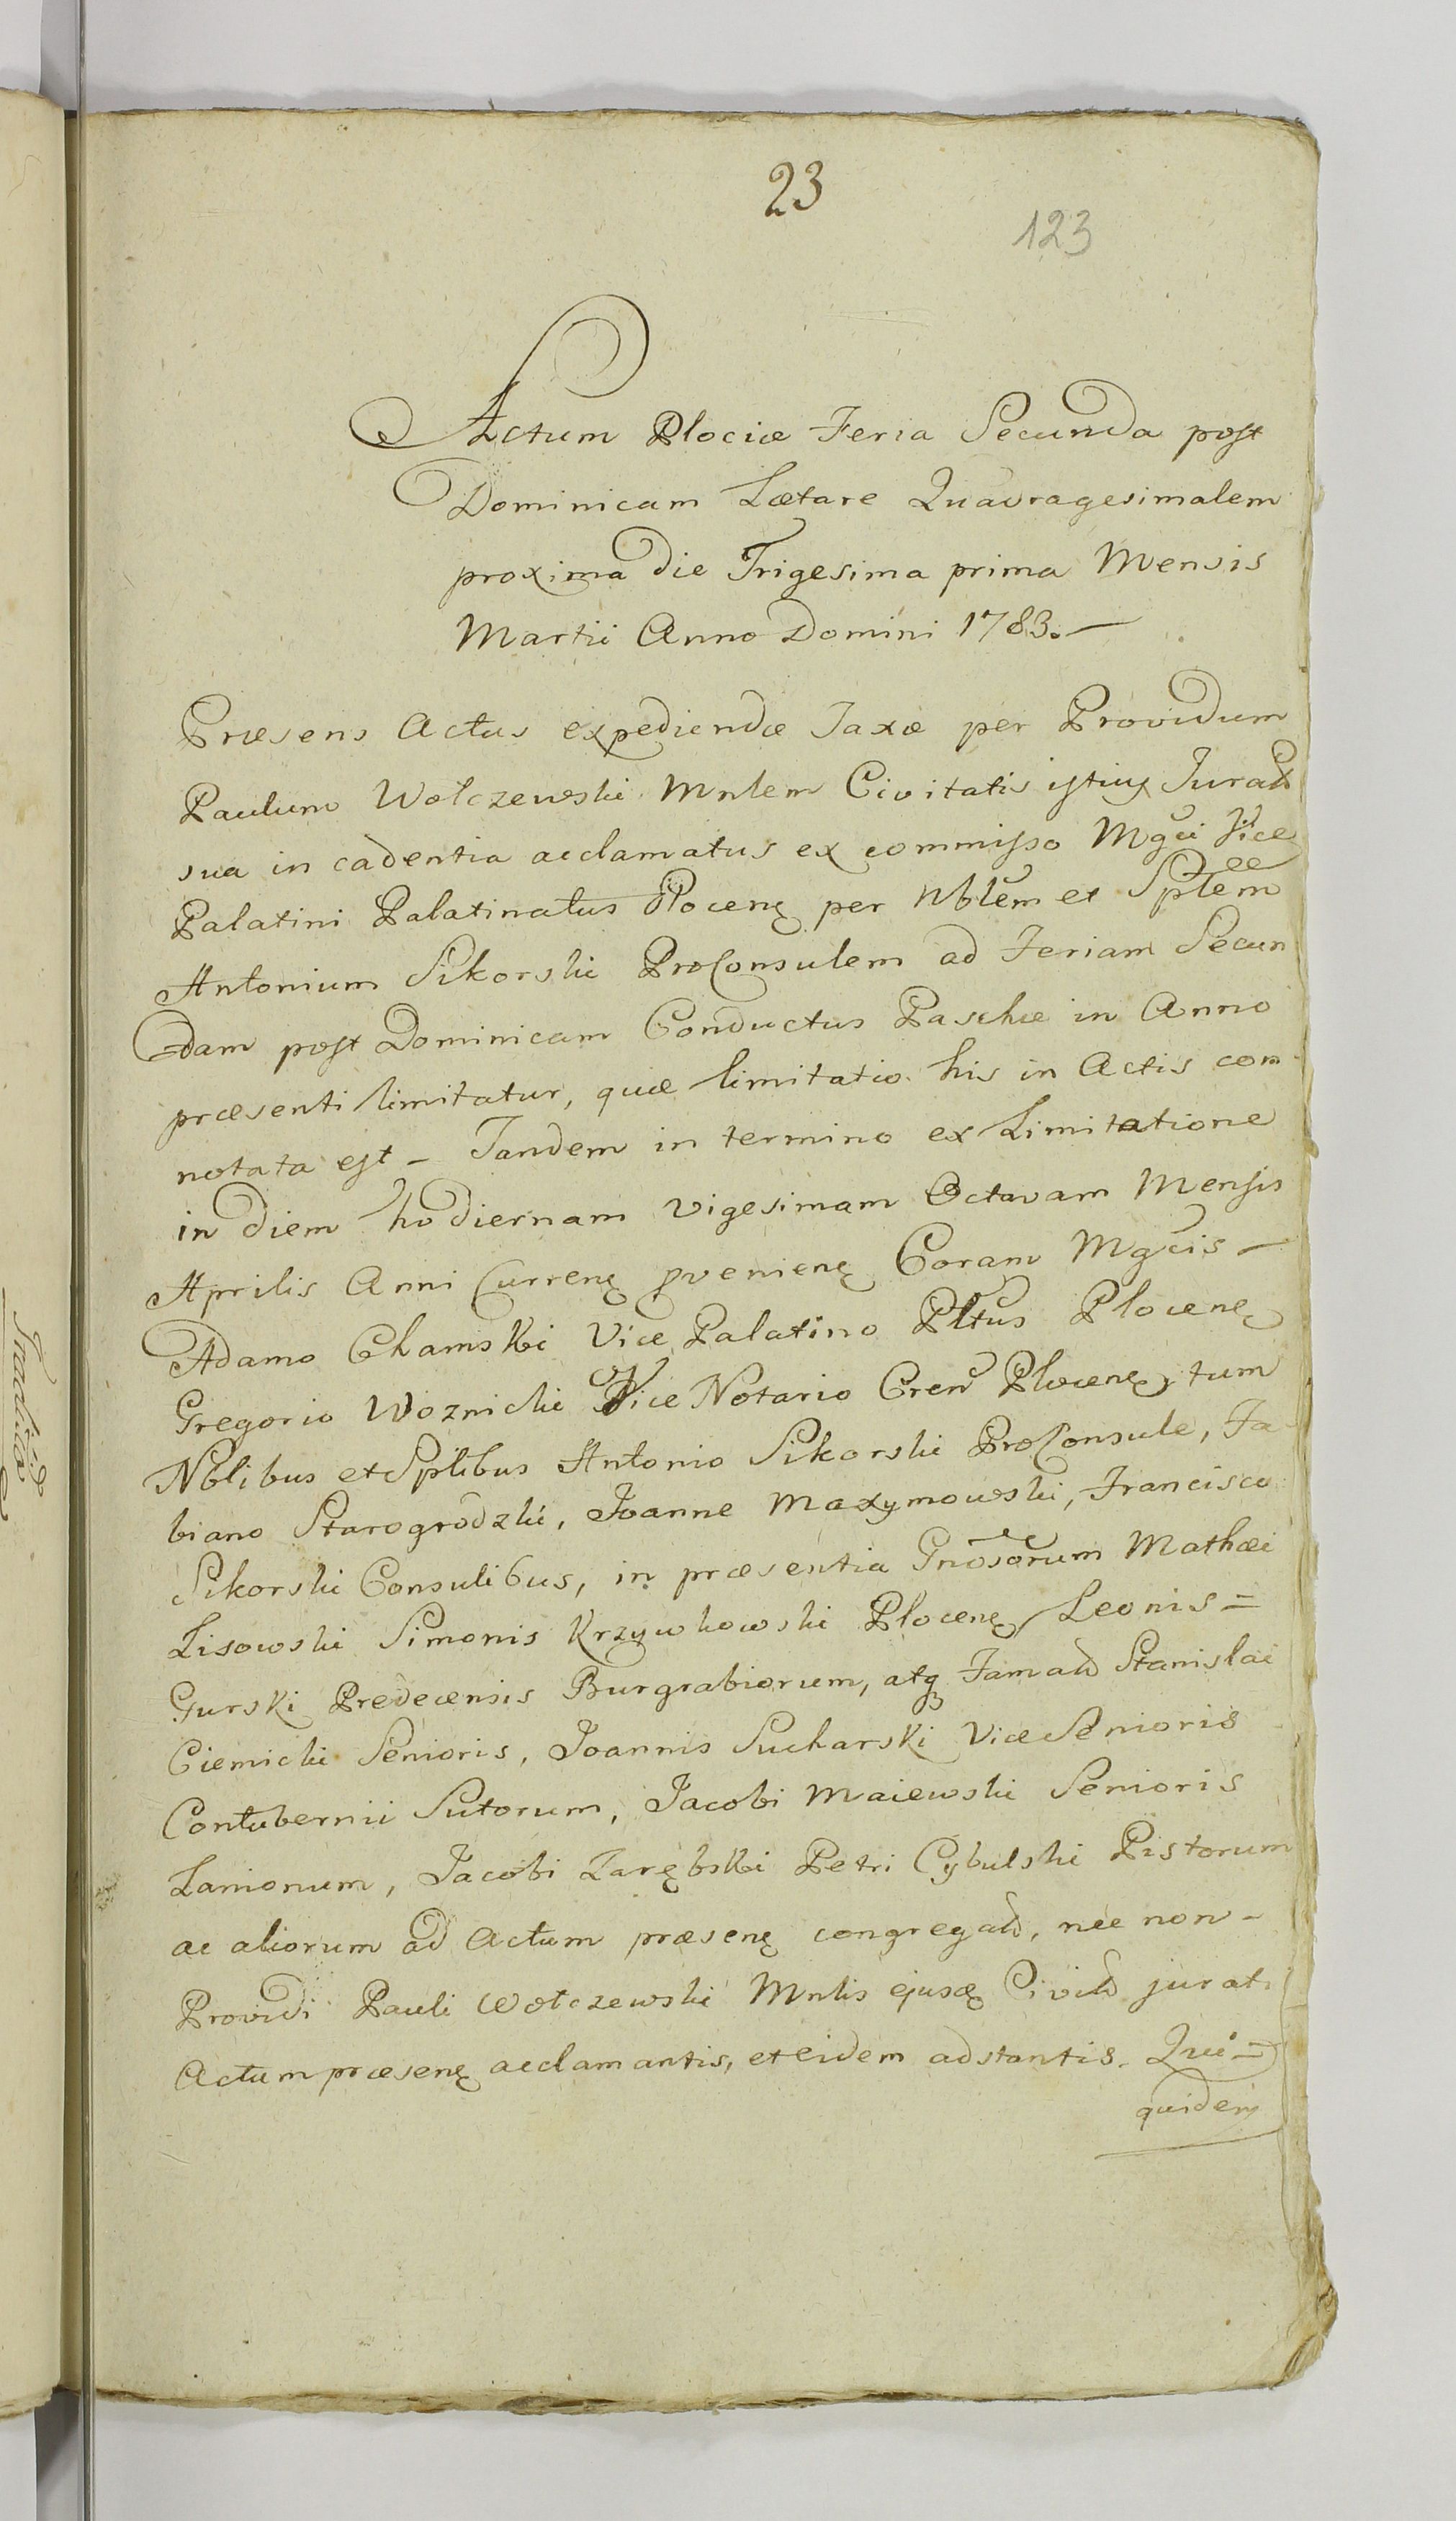 23
123
Actum Plociæ Feria Secunda post
Dominicam Lætare Quadragesimalem
proxima die Trigesima prima Mensis
Martii Anno Domini 1783.—
Præsens Actus expediendæ Taxæ per Providum
Paulum Wołczewski Mnlem Civitatis istius Jurat
sua in cadentia acclamatus ex commisso Mgci Vice
Palatini Palatinatus Plocenę per Nblem et Sptlem
Antonium Sikorski ProConsulem ad Feriam Secun
dam post Dominicam Conductus Paschæ in Anno
præsenti limitatur, quæ limitatio his in Actis con
notata est – Tandem in termino ex Limitatione
in diem hodiernam vigesimam Octavam Mensis
Aprilis Anni Currenę pvenienę Coram Mgcis –
Adamo Chamski Vice Palatino Pltus Plocenę
Gregorio Woznicki Vice Notario Cren Plocenę, tum
Nblibus et Sptlibus Antonio Sikorski ProConsule, Fa
biano Starogrodzki, Joanne Maxymowski, Francisco
Sikorski Consulibus, in præsentia Gnosorum Mathæi
Lisowski Simonis Krzywkowski Plocenę, Leonis =
Gurski Predecensis Burgrabiorum, atq Famat Stanislai
Ciemicki Senioris, Joannis Sucharski ViceSenioris
Contubernii Sutorum, Jacobi Maiewski Senioris
Lanionum, Jacobi Zarębski Petri Cybulski Pistorum
ac aliorum ad Actum præsenę congregat, nec non –
Providi Pauli Wołczewski Mnlis ejusę Civit jurat.
Actum præsenę acclamantis, et eidem adstantis. Qui =
quidem